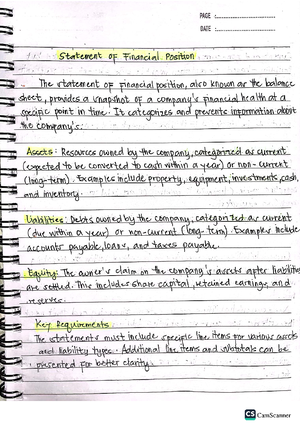 PAGE :
DATE :
Statement of Financial Position
The statement of financial position, also known as the balance
sheet, provides a snapshot of a company's financial health at a
specific point in time. It categorizes and presents information about
the company's:
Assets: Resources owned by the company, categorized as current
(expected to be converted to cash within a year) or non-current
(long-term). Examples include property, equipment, investments, cash,
and inventory.
Liabilities: Debts owed by the company, categorized as current
(due within a year) or non-current (long-term). Examples include
accounts payable, loans, and taxes payable.
Equity: The owner's claim on the company's assets after liabilities
are settled. This includes share capital, retained earnings, and
reserves.
Key Requirements
The statements must include specific line items for various assets
and liability types. Additional line items and subtotals can be
presented for better clarity.
CS CamScanner